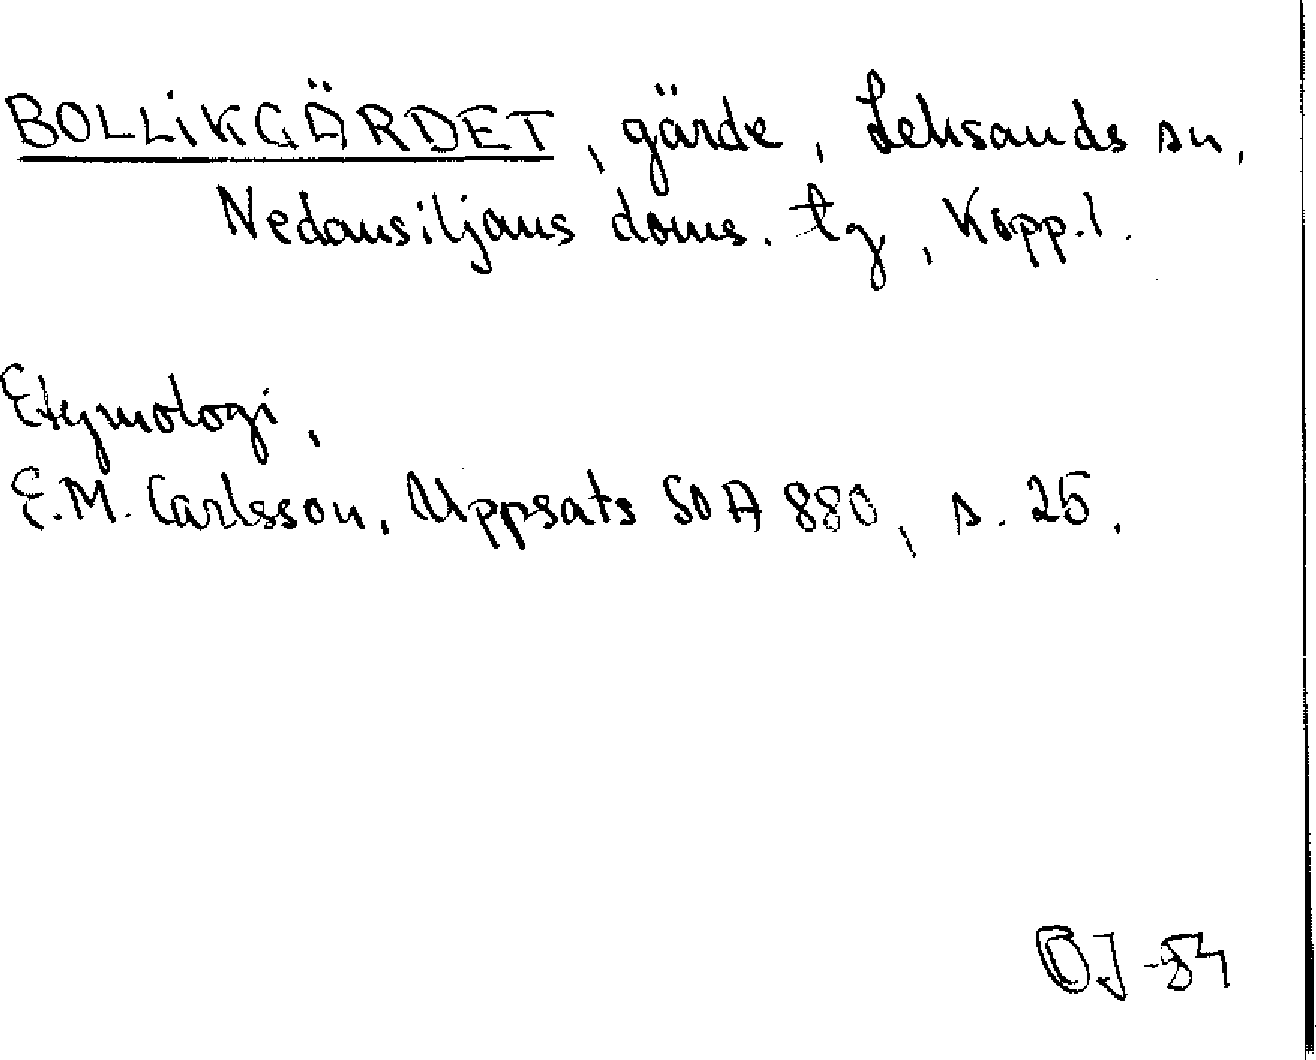 BOLLIKGÄRDET, gärde, Leksands sn,
Nedansiljans doms. tg, Kopp.l.
Etymologi,
E.M. Carlsson, Uppsats SOA 880, s. 25.
OJ-54